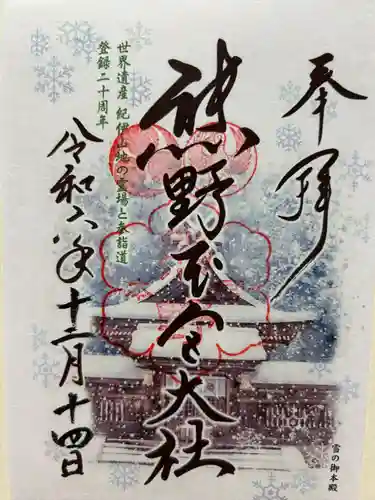 奉拝
熊野不"大社
世界遺産 紀伊山地の霊場と参詣道
登録二十周年
令和六年十二月十四日
雪の御本殿